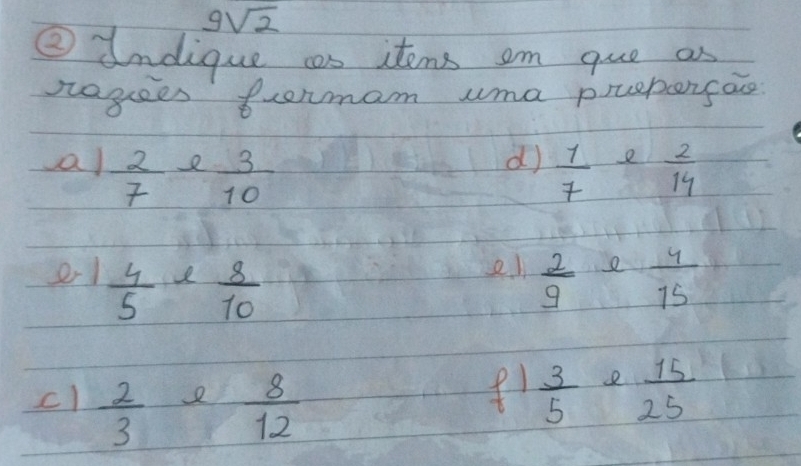 9√2
② Indique os itens em que as
razões formam uma proporção:
a) 2/7 e 3/10 d) 1/7 e 2/14
b) 4/5 e 8/10 e) 2/9 e 4/15
c) 2/3 e 8/12 f) 3/5 e 15/25